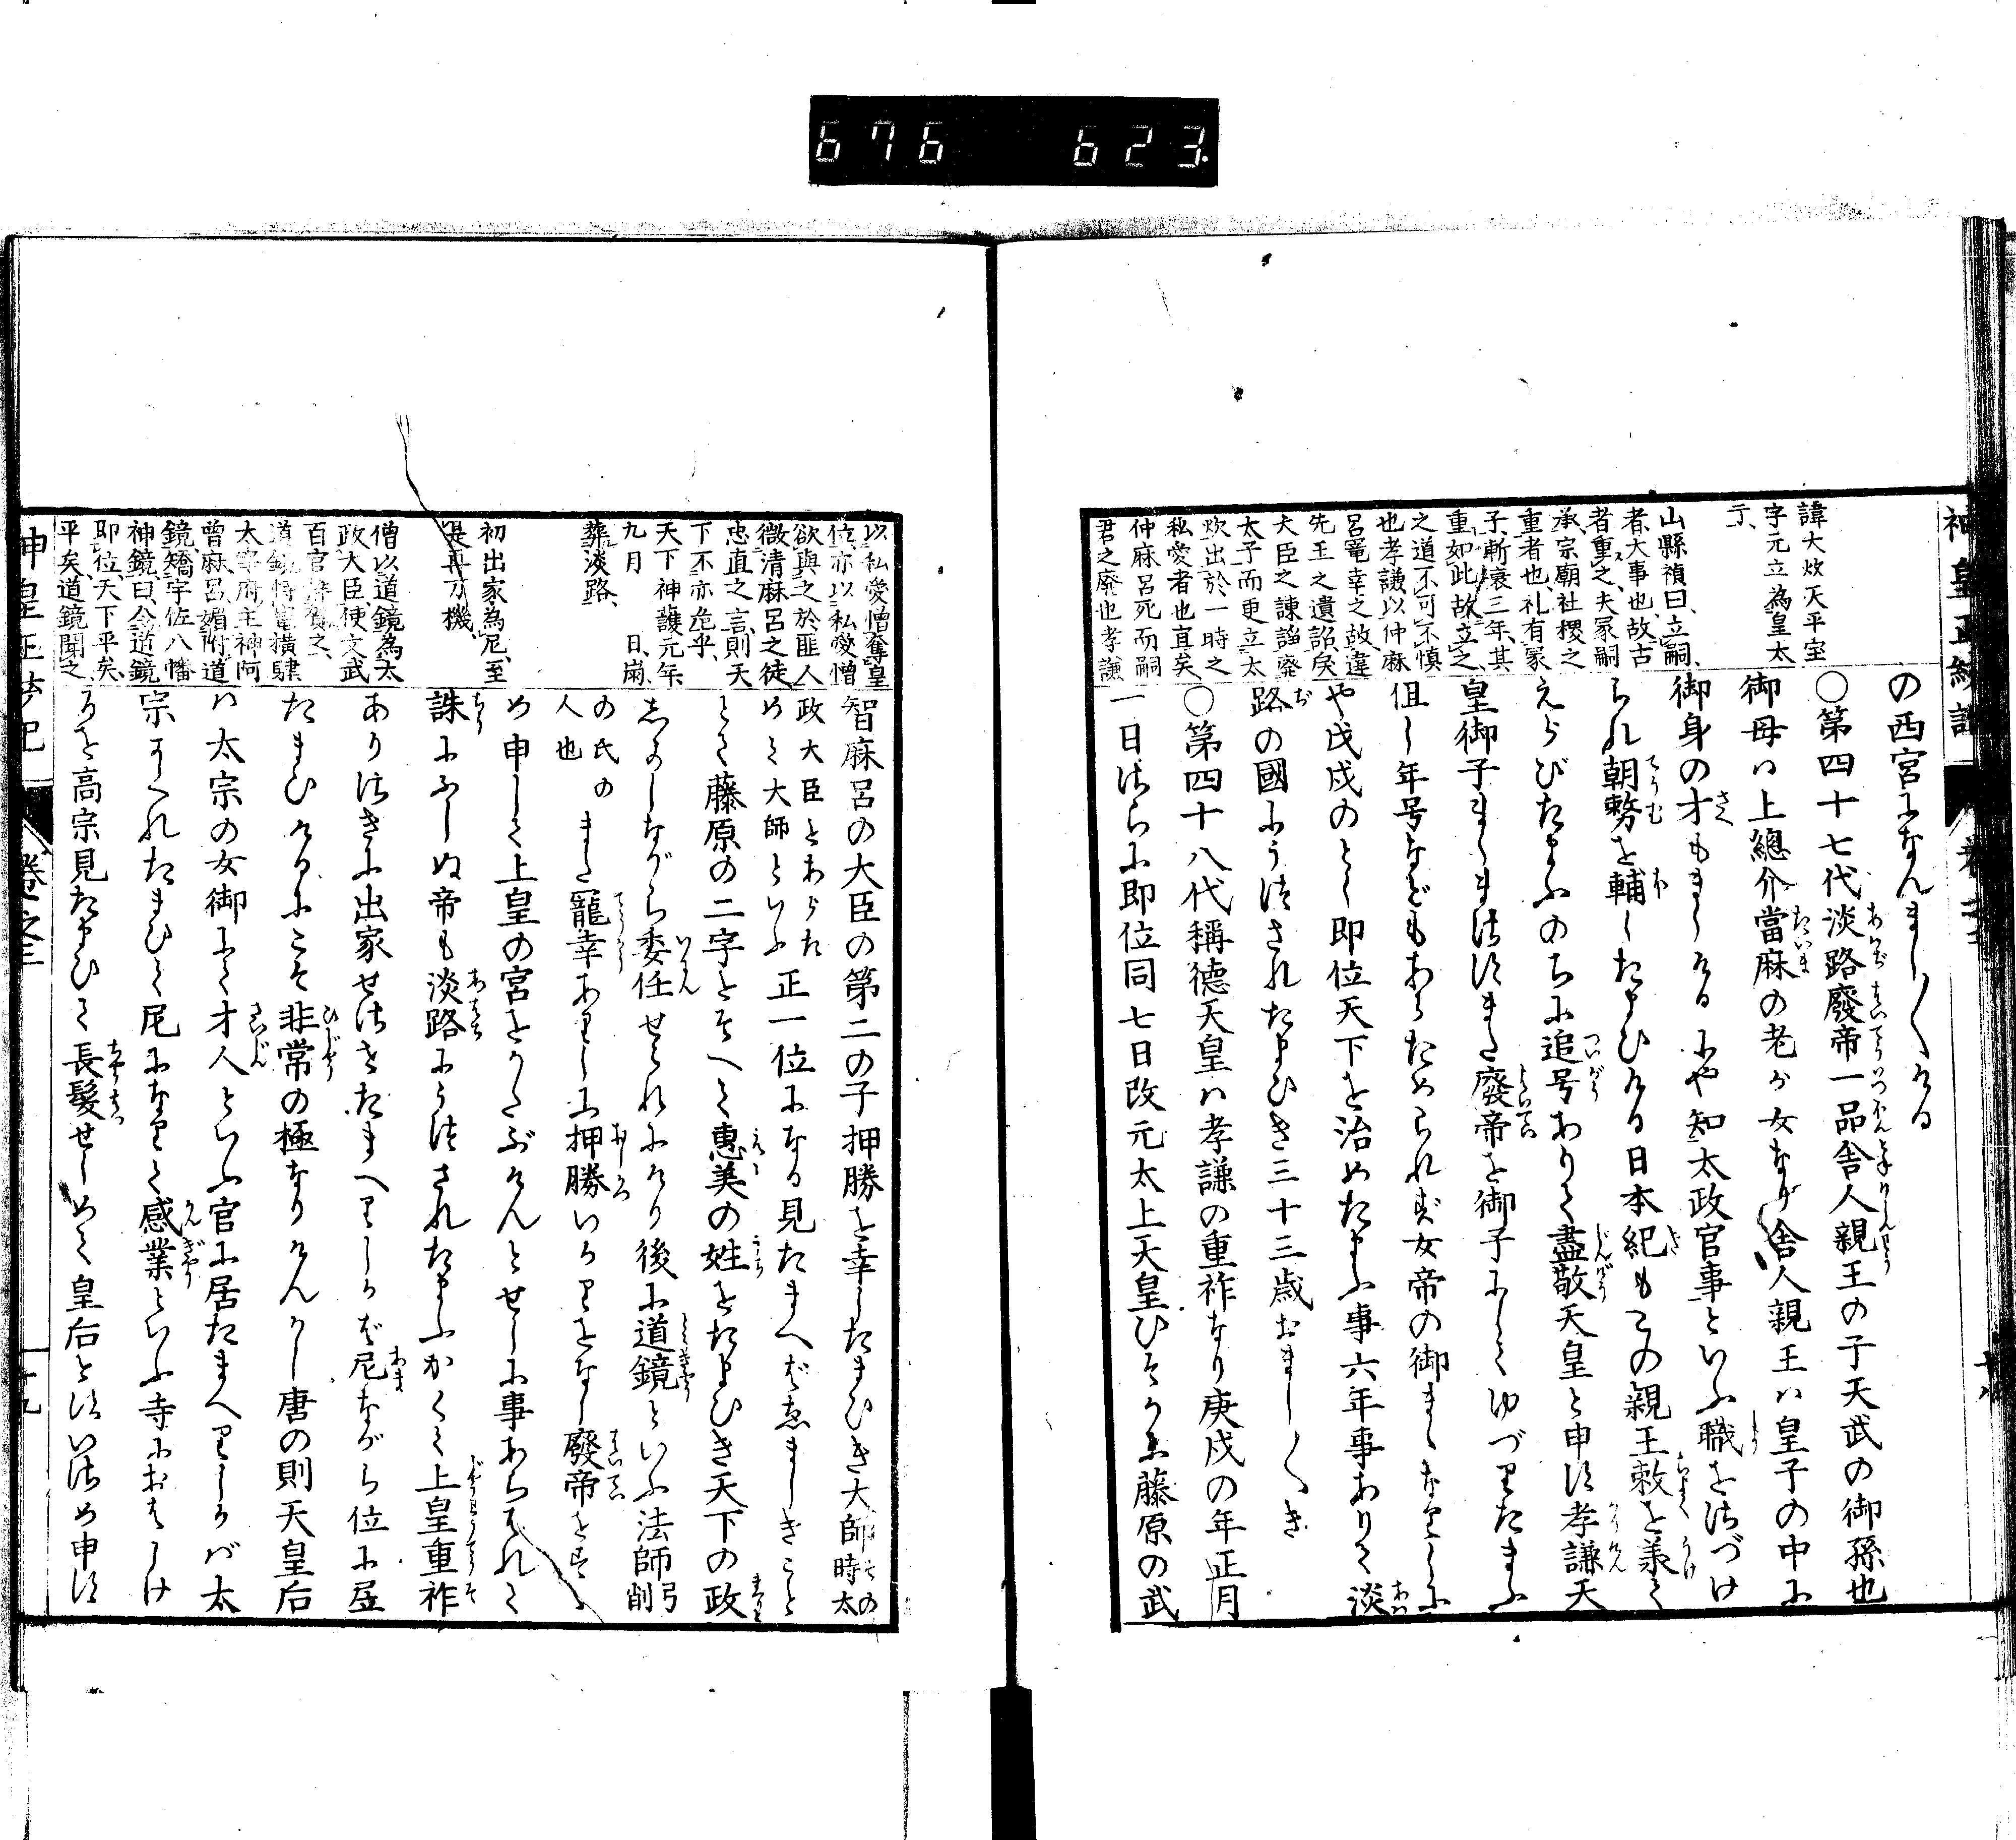 676 623
神皇正統記
諱大炊天平宝
字元立為皇太
子、
山縣禎曰、立嗣
者、大事也、故古
者重之、夫冢嗣
承宗廟社稷之
重者也、礼有冢
子、斬衰三年、其
重如此、故立之
之道不可不慎
也、孝謙以仲麻
呂竃幸之故、違
先王之遺詔、廃
大臣之諫、謚廢
太子而更立太
炊、出於一時之
私愛者也、宜矣
仲麻呂死而嗣
君之廃也、孝謙
の西宮になんまし〳〵ける
○第四十七代淡路廢帝一品舎人親王の子天武の御孫也
御母ハ上總介當麻の老が女なり舎人親王ハ皇子の中に
御身の才もましけるにや知太政官事といふ職をさづけ
られ朝務を輔したまひける日本紀もこの親王敕を羕て
えらびたまふのちに追号ありて盡敬天皇と申す孝謙天
皇御子ましまさずまた廢帝を御子にしてゆづりたまふ
但し年号などもあらためられず女帝の御まゝなりしに
や戊戌のとし即位天下を治めたまふ事六年事ありて淡
路の國にうつされたまひき三十三歳おまし〳〵き
○第四十八代稱德天皇ハ孝謙の重祚なり庚戌の年正月
一日さらに即位同七日改元太上天皇ひそかに藤原の武
以私愛憎奪皇
位亦以私愛憎
欲與之於匪人
微清麻呂之徒
忠直之言、則天
下不亦危乎、
天下神護元年
九月 日、崩、
葬淡路、
初出家為尼、至
是再万機、
僧以道鏡為太
政大臣、使文武
百官拜賀之、
道鏡恃寵横肆
太宰府主神阿
曽麻呂、媚附道
鏡、矯宇佐八幡
神鏡曰、令道鏡
即位、天下平矣、
平矣、道鏡聞之
智麻呂の大臣の第二の子押勝を幸したまひき大師その時太
政大臣とあらためて大師といふ正一位になる見たまへばゑましきこと
とて藤原の二字をそへて惠美の姓をたまひき天下の政
しかしながら委任せられにけり後に道鏡といふ法師弓削
の氏の人也また寵幸ありしに押勝いかりをなし廢帝をすゝ
め申して上皇の宮をかたぶけんとせしに事あらはれて
誅にふしぬ帝も淡路にうつされたまふかくて上皇重祚
ありさきに出家せさせたまへりしかば尼ながら位に居
たまひけるにこそ非常の極なりけんかし唐の則天皇后
ハ太宗の女御にて才人といふ官に居たまへりしかバ太
宗かくれたまひて尼になりて感業といふ寺におはしけ
るを高宗見たまひて長髮せしめて皇后とすいさめ申す
神皇正統記
卷之三
十九